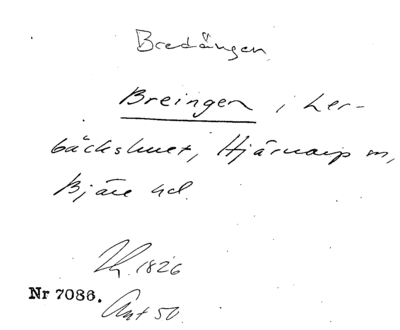 Bredängen
Breingen i Ler-
bäckshult, Hjärnarp sn,
Bjäre hd.
1826
Nr 7086.
Ant 50